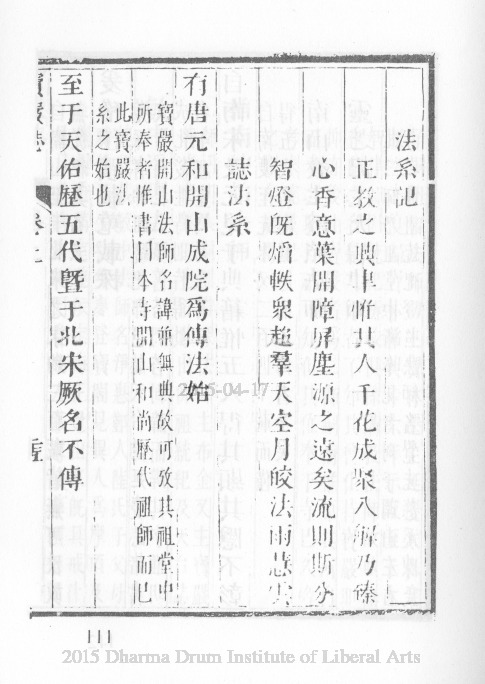 法系記
正教之興卓惟其人千花成聚八解乃臻
心香意葉開障屏塵源之遠矣流則斯分
智燈旣熖軼衆超羣天空月皎法雨慈雲
誌法系
有唐元和開山成院爲傳法始
寶嚴開山法師名諱無典故可攷其祖堂中
所奉者惟書曰本寺開山和尚歷代祖師而已
此寶嚴法
系之始也
至于天佑歷五代曁于北宋厥名不傳
寶嚴誌
卷上
2015-04-17
111
2015 Dharma Drum Institute of Liberal Arts